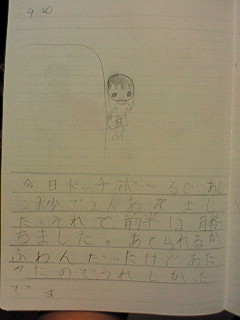 9.20
今日ドッチボールであ
2秒で2人あてまし
た。それで前半は勝
ちました。あてられるか
ふわんだったけどあた
ったのでうれしかった
です